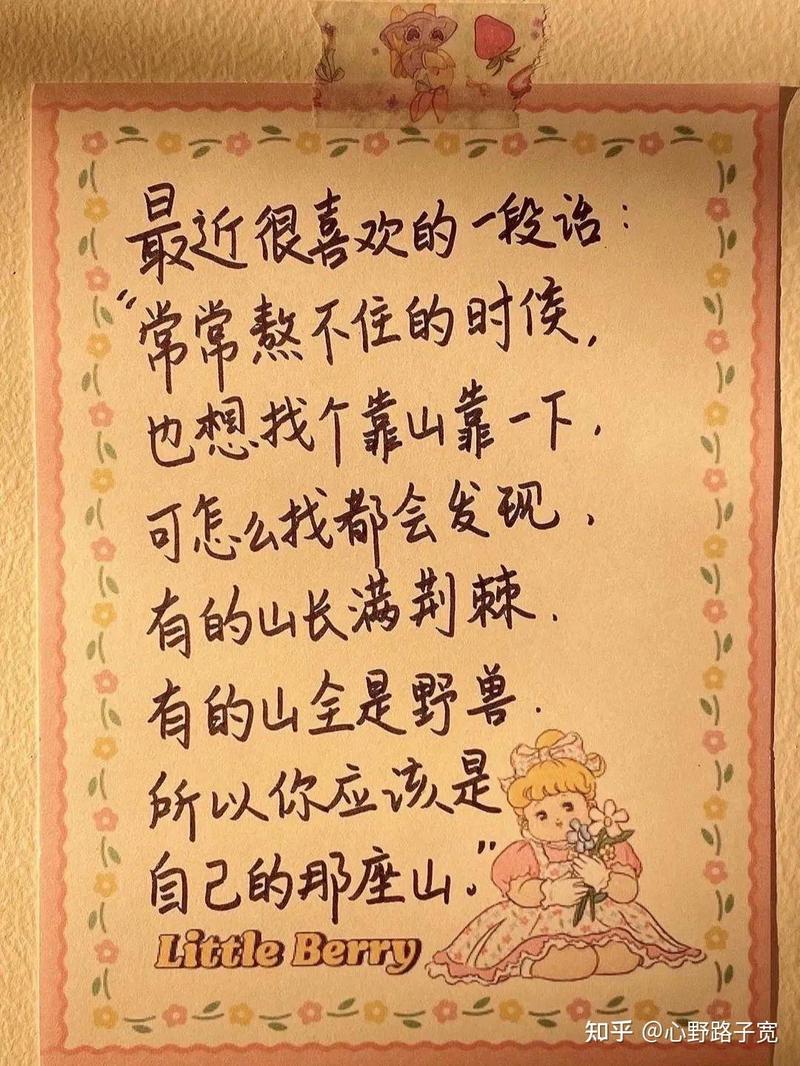 最近很喜欢的一段话：
“常常熬不住的时候，
也想找个靠山靠一下，
可怎么找都会发现，
有的山长满荆棘．
有的山全是野兽．
所以你应该是
自己的那座山。”
Little Berry
知乎 @心野路子宽